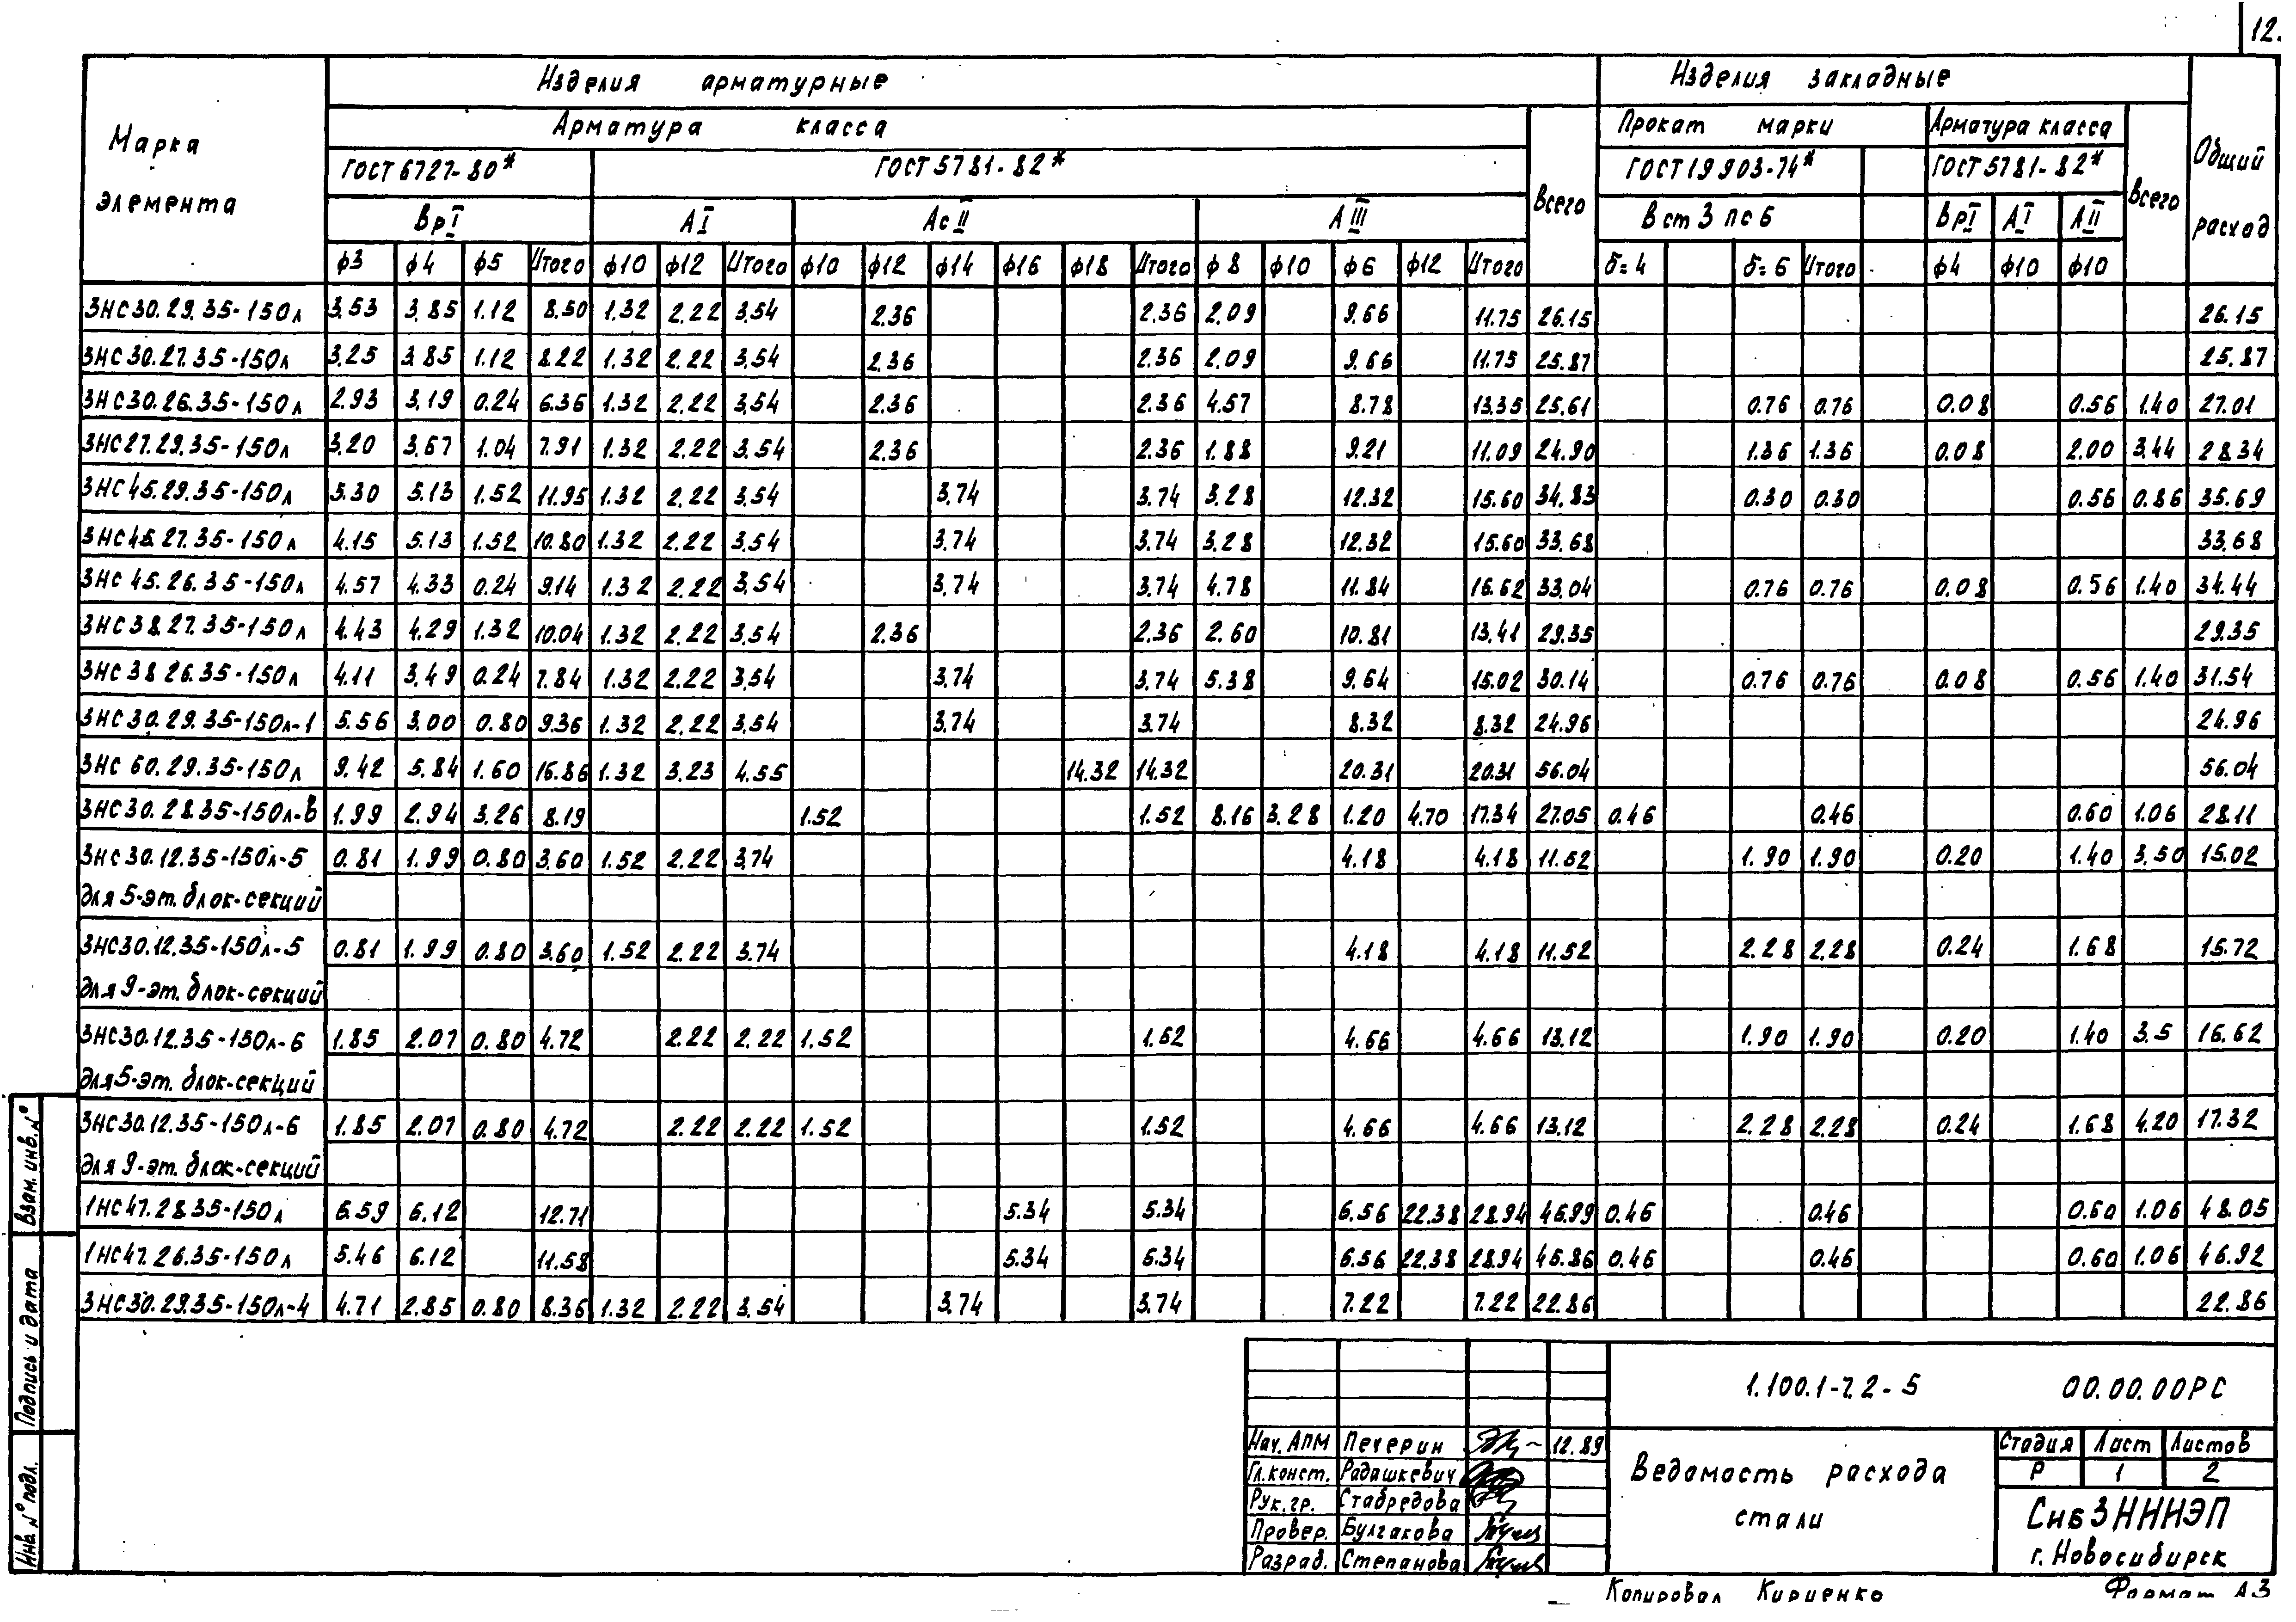 12.
Марка элемента
Изделия арматурные
Изделия закладные
Общий расход
Арматура класса
Всего
Прокат марки
Арматура класса
Всего
ГОСТ 6727-80*
ГОСТ 5781-82*
ГОСТ 19903-74*
ГОСТ 5781-82*
Вр I
А I
Ас II
А III
В ст 3 пс 6
Вр I
А I
А II
ф3 ф4 ф5 Итого ф10 ф12 Итого ф10 ф12 ф14 ф16 ф18 Итого ф8 ф10 ф6 ф12 Итого δ=4 δ=6 Итого ф4 ф10 ф10
3НС30.29.35-150л 3.53 3.85 1.12 8.50 1.32 2.22 3.54 2.36 2.36 2.09 9.66 11.75 26.15 26.15
3НС30.27.35-150л 3.25 3.85 1.12 8.22 1.32 2.22 3.54 2.36 2.36 2.09 9.66 11.75 25.87 25.87
3НС30.26.35-150л 2.93 3.19 0.24 6.36 1.32 2.22 3.54 2.36 2.36 4.57 8.78 13.35 25.61 0.76 0.76 0.08 0.56 1.40 27.01
3НС27.29.35-150л 3.20 3.67 1.04 7.91 1.32 2.22 3.54 2.36 2.36 1.88 9.21 11.09 24.90 1.36 1.36 0.08 2.00 3.44 28.34
3НС45.29.35-150л 5.30 5.13 1.52 11.95 1.32 2.22 3.54 3.74 3.74 3.28 12.32 15.60 34.83 0.30 0.30 0.56 0.86 35.69
3НС45.27.35-150л 4.15 5.13 1.52 10.80 1.32 2.22 3.54 3.74 3.74 3.28 12.32 15.60 33.68 33.68
3НС 45.26.35-150л 4.57 4.33 0.24 9.14 1.32 2.22 3.54 3.74 3.74 4.78 11.84 16.62 33.04 0.76 0.76 0.08 0.56 1.40 34.44
3НС38.27.35-150л 4.43 4.29 1.32 10.04 1.32 2.22 3.54 2.36 2.36 2.60 10.81 13.41 29.35 29.35
3НС 38 26.35-150л 4.11 3.49 0.24 7.84 1.32 2.22 3.54 3.74 3.74 5.38 9.64 15.02 30.14 0.76 0.76 0.08 0.56 1.40 31.54
3НС30.29.35-150л-1 5.56 3.00 0.80 9.36 1.32 2.22 3.54 3.74 3.74 8.32 8.32 24.96 24.96
3НС 60.29.35-150л 9.42 5.84 1.60 16.86 1.32 3.23 4.55 14.32 14.32 20.31 20.31 56.04 56.04
3НС30.28.35-150л-в 1.99 2.94 3.26 8.19 1.52 1.52 8.16 3.28 1.20 4.70 17.34 27.05 0.46 0.46 0.60 1.06 28.11
3НС30.12.35-150л-5 0.81 1.99 0.80 3.60 1.52 2.22 3.74 4.18 4.18 11.52 1.90 1.90 0.20 1.40 3.50 15.02
для 5-эт. блок-секций
3НС30.12.35-150л-5 0.81 1.99 0.80 3.60 1.52 2.22 3.74 4.18 4.18 11.52 2.28 2.28 0.24 1.68 15.72
для 9-эт. блок-секций
3НС30.12.35-150л-6 1.85 2.07 0.80 4.72 2.22 2.22 1.52 1.52 4.66 4.66 13.12 1.90 1.90 0.20 1.40 3.5 16.62
для 5-эт. блок-секций
3НС30.12.35-150л-6 1.85 2.07 0.80 4.72 2.22 2.22 1.52 1.52 4.66 4.66 13.12 2.28 2.28 0.24 1.68 4.20 17.32
для 9-эт. блок-секций
1НС47.28.35-150л 6.59 6.12 12.71 5.34 5.34 6.56 22.38 28.94 46.99 0.46 0.46 0.60 1.06 48.05
1НС47.26.35-150л 5.46 6.12 11.58 5.34 5.34 6.56 22.38 28.94 45.86 0.46 0.46 0.60 1.06 46.92
3НС30.29.35-150л-4 4.71 2.85 0.80 8.36 1.32 2.22 3.54 3.74 3.74 7.22 7.22 22.86 22.86
Взам. инв. №
Подпись и дата
Инв. № подл.
1.100.1-7.2-5 00.00.00РС
Нач. АПМ Печерин 12.89
Гл. конст. Радашкевич
Рук. гр. Стабредова
Провер. Булгакова
Разраб. Степанова
Ведомость расхода стали
Стадия Лист Листов
Р 1 2
СибЗНИИЭП
г. Новосибирск
Копировал Кириенко
Формат А3